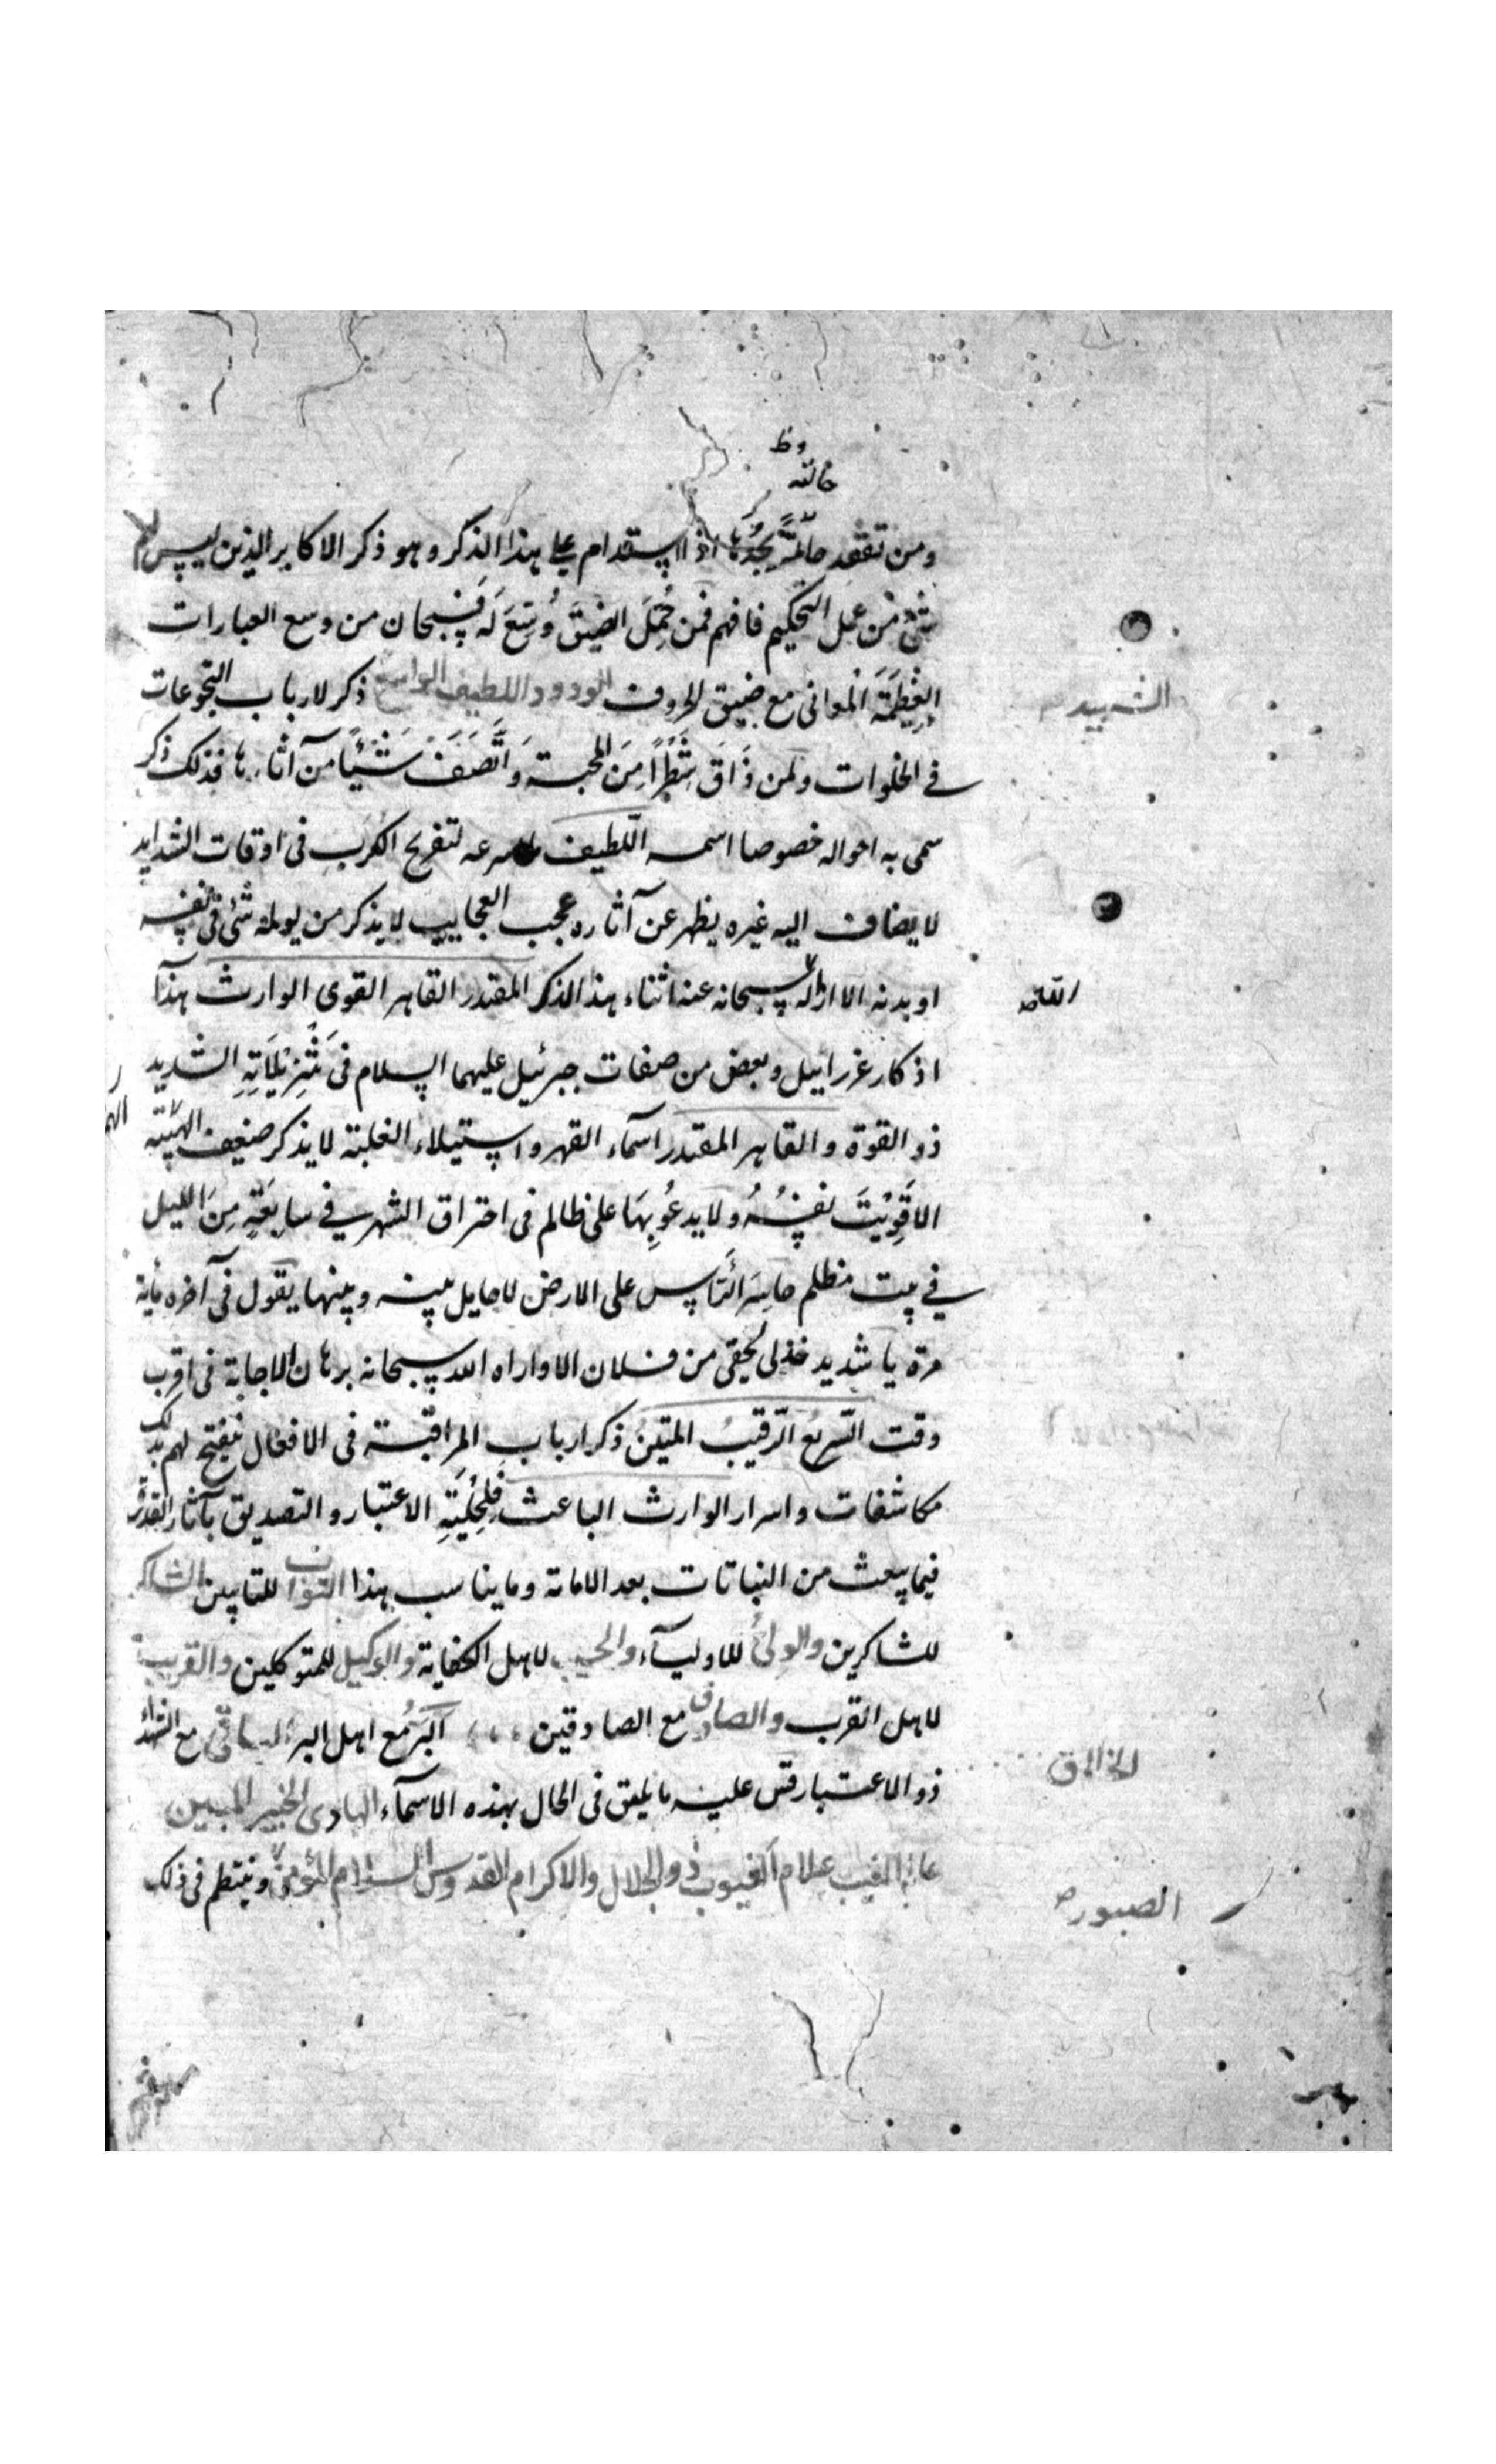 ومن تفقد حالته يجدها اذا استقدام على هذا الذكر وهو ذكر الاكابر الذين ليس لهم
شئ من عمل التحكيم فافهم فمن حُمِّلَ الضيقَ وُسِّعَ لَهُ فسبحان من وسع العبارات
العظيمة المعانى مع ضيق الحروف الودود اللطيف الواسع ذكر لارباب التجوعات
في الخلوات ولمن ذَاقَ شَطْرًا مِنَ المحبة وَاتَّصَفَ شَيْئًا من آثارها فذلك ذكر
سمى به احواله خصوصا اسمه اللّطيف سرعه لتفريج الكرب فى اوقات الشدايد
لا يضاف اليه غيره يظهر عن آثاره عجب العجايب لا يذكر من يولمه شئ فى نفسه
او بدنه الا ازاله سبحانه عنه اثناء هذ الذكر المقتدر القاهر القوى الوارث هذا
اذكار عزراييل وبعض من صفات جبرئيل عليهما السلام فى تنزيلاته الشديد
ذو القوة والقاهر المقتدر اسماء القهر واستيلاء الغلبة لا يذكر ضعيف الهيئة
الا قَوِيَتْ نفسُهُ ولا يدعُو بِهَا على ظالم فى احتراق الشهر في سابعَةٍ مِنَ الليل
في بيت مظلم حاسر الرأس على الارض لا حايل بينه وبينها يقول فى آخره مأية
مرة يا شديد خذ لى بحقى من فلان الا واراه الله سبحانه برهان الاجابة فى اقرب
وقت السّريعُ الرّقيبُ المتينُ ذكر ارباب المراقبة فى الافعال ينفتح لهم بذلك
مكاشفات واسرار الوارث الباعث الاعتبار والتصديق بآثار القدرة
فيما يبعث من النباتات بعد الاماتة وما يناسب هذا التواب للتايبين الشاكر
للشاكرين والولىّ للاولياء والحسيب لاهل الكفاية والوكيل للمتوكلين والقريب
لاهل القرب والصادق مع الصادقين البَرّ مع اهل البر الباقى مع
ذو الاعتبار قس عليه ما يليق فى الحال بهذه الاسماء الهادى الخبير المبين
عالم الغيب علام الغيوب ذو الجلال والاكرام القدوس السلام المؤمن وينتظم فى ذلك
الشهيد
القاهر
الخالق
الصبور